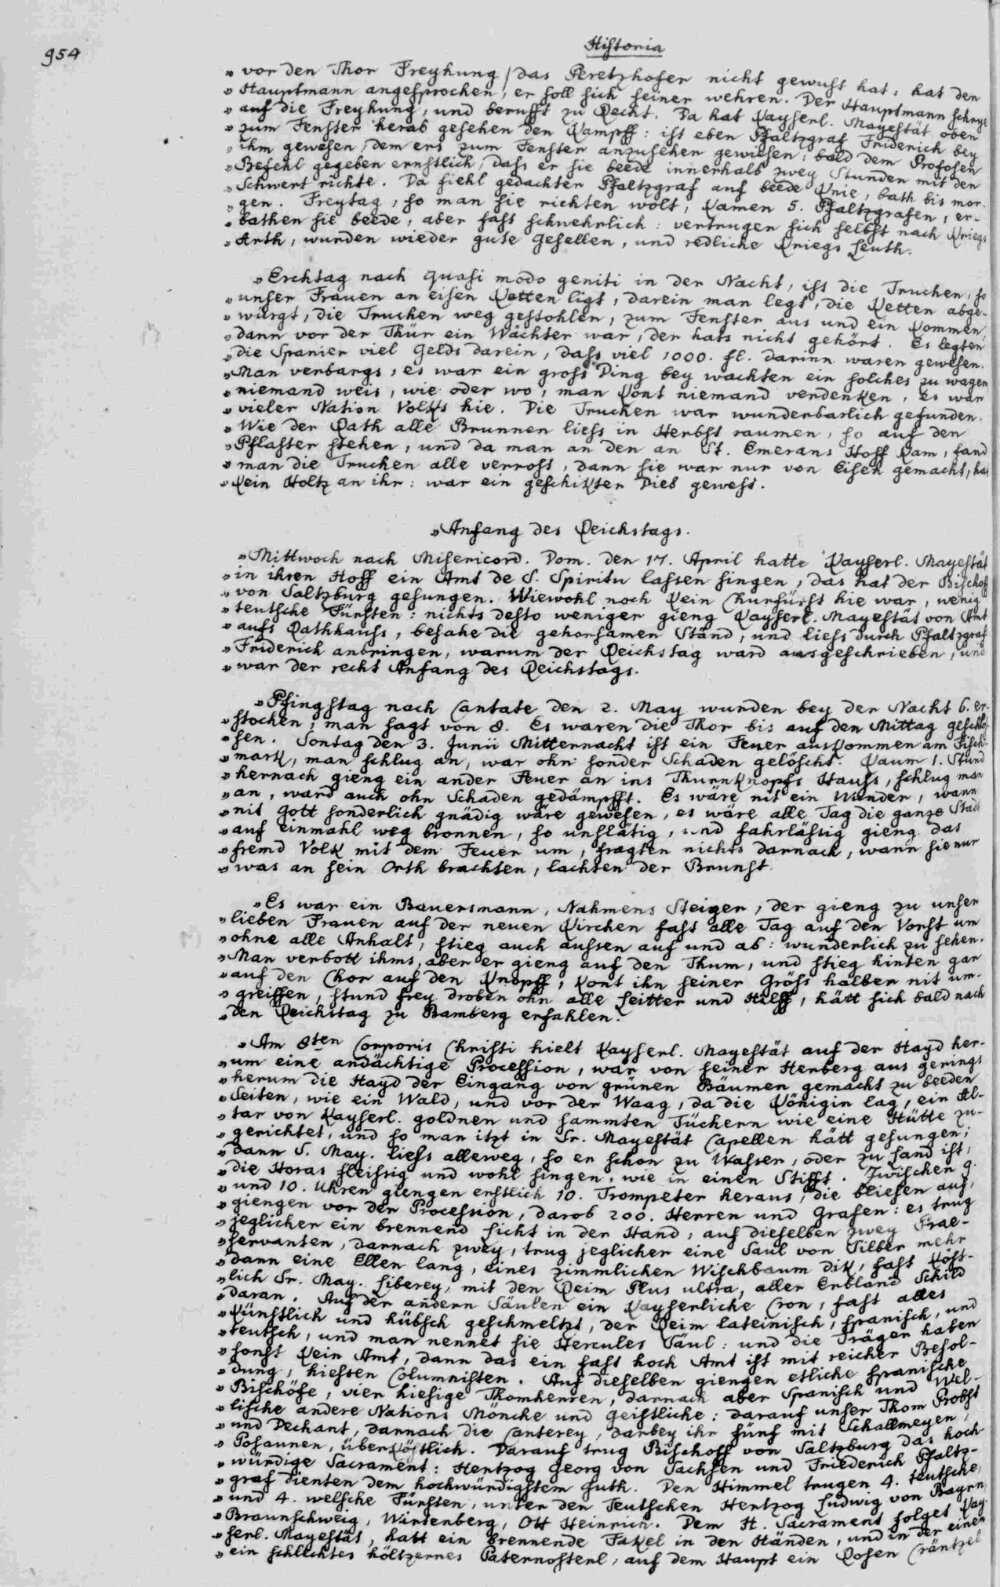 954
Historia
» vor den Thor Freyhung / das Peretzhofer nicht gewust hat, hat den
» Hauptmann angesprochen, er soll sich seiner wehren. Der Hauptmann schrye
» auf die Freyhung, und berufft zu Recht. Da hat Kayserl. Mayestät oben
» zum Fenster herab gesehen den Kampff: ist eben Pfaltzgraf Friderich bey
» ihm gewesen, dem ers zum Fenster anzusehen gewissen: bald dem Profosen
» Befehl gegeben ernstlich, dass er sie beede innerhalb zwey Stunden mit den
» Schwert richte. Da fiehl gedachter Pfaltzgraf auf beede Knie, bath bis mor-
» gen. Freytag, so man sie richten wolt, kamen 5. Pfaltzgrafen, er-
» bathen sie beede, aber fast schwehrlich: vertrugen sich selbst nach Kriegs
» Arth, wurden wieder gute Gesellen, und redliche Kriegs Leuth.
» Erchtag nach Quasi modo geniti in der Nacht, ist die Truchen, so
» unser Frauen an eisen Ketten ligt, darein man legt, die Ketten abge-
» würgt, die Truchen weg gestohlen, zum Fenster aus und ein kommen
» dann vor der Thür ein Wächter war, der hats nicht gehört. Es legten
» die Spanier viel Gelds darein, dass viel 1000. fl. darinn waren gewesen.
» Man verbargs, es war ein gross Ding bey wachten ein solches zu wagen
» niemand weis, wie oder wo, man kont niemand verdenken, es war
» vieler Nation Volks hie. Die Truchen war wunderbarlich gefunden.
» Wie der Rath alle Brunnen liess in Herbst raumen, so auf den
» Pflaster stehen, und da man an den an St. Emerans Hoff kam, fand
» man die Truchen alle verrost, dann sie war nur von Eisen gemacht, hat
» kein Holtz an ihr: war ein geschikter Dieb gewest.
» Anfang des Reichstags.
» Mittwoch nach Misericord. Dom. den 17. April hatte Kayserl. Mayestät
» in ihren Hoff ein Amt de S. Spiritu lassen singen, das hat der Bischoff
» von Saltzburg gesungen. Wiewohl noch kein Churfürst hie war, wenig
» teutsche Fürsten: nichts desto weniger gieng Kayserl. Mayestät von Amt
» aufs Rathhauss, besahe die gehorsamen Ständ, und liess durch Pfaltzgraf
» Friderich anbringen, warum der Reichstag ward ausgeschrieben, und
» war der recht Anfang des Reichstags.
» Pfingstag nach Cantate den 2. May wurden bey der Nacht 6. er-
» stochen, man sagt von 8. Es waren die Thor bis auf den Mittag geschlos-
» sen. Sontag den 3. Junii Mitternacht ist ein Feuer auskommen am Fisch-
» mark, man schlug an, war ohn sonder Schaden gelöscht. Kaum 1. Stund
» hernach gieng ein ander Feuer an ins Thurnknopfs Hauss, schlug man
» an, ward auch ohn Schaden gedämpfft. Es wäre nit ein Wunder, wann
» nit Gott sonderlich gnädig wäre gewesen, es wäre alle Tag die gantze Stadt
» auf einmahl weg bronnen, so unflätig, und fahrlässig gieng das
» fremd Volk mit dem Feuer um, fragten nichts darnach, wann sie nur
» was an sein Orth brachten, lachten der Brunst.
» Es war ein Bauersmann, Nahmens Steiger, der gieng zu unser
» lieben Frauen auf der neuen Kirchen fast alle Tag auf den Vorst um
» ohne alle Anhalt, stieg auch aussen auf und ab: wunderlich zu sehen.
» Man verbott ihms, aber er gieng auf den Thum, und stieg hinten gar
» auf den Chor auf den Knopff, kont ihn seiner Gröss halben nit um-
» greiffen, stund frey droben ohn alle Leitter und Hilff, hätt sich bald nach
» den Reichstag zu Bamberg erfahlen.
» Am 8ten Corporis Christi hielt Kayserl. Mayestät auf der Hayd her-
» um eine andächtige Procession, war von seiner Herberg aus gerings
» herum die Hayd der Eingang von grünen Bäumen gemacht zu beeden
» Seiten, wie ein Wald, und vor der Waag, da die Königin lag, ein Al-
» tar von Kayserl. goldnen und sammten Tüchern wie eine Hütte zu-
» gerichtet, und so man itzt in Sr. Mayestät Capellen hätt gesungen;
» dann S. May. liess alleweg, so er schon zu Wasser, oder zu Land ist,
» die Horas fleissig und wohl singen, wie in einen Stifft. Zwischen 9.
» und 10. Uhren giengen erstlich 10. Trompeter heraus, die bliesen auf,
» giengen vor der Procession, darob 200. Herren und Grafen: es trug
» jeglicher ein brennend Licht in der Hand, auf dieselben zwey Prae-
» servanten, darnach zwey, trug jeglicher eine Saul von Silber mehr
» dann eine Ellen lang, eines zimmlichen Wischbaum dik, fast köst-
» lich Sr. May. Liberey, mit den Reim Plus ultra, aller Erbland Schild
» daran. Auf der andern Säulen ein Kayserliche Cron, fast alles
» künstlich und hübsch geschmeltzt, der Reim lateinisch, spanisch, und
» teutsch, und man nennet sie Hercules Säul: und die Trägen haben
» sonst kein Amt, dann das ein fast hoch Amt ist mit reicher Besol-
» dung, hiessen Columnisten. Auf dieselben giengen etliche spanische
» Bischöfe, vier hiesige Thomherren, darnach aber Spanisch und Wel-
» lische andere Nations Mönche und Geistliche: darauf unser Thom Probst
» und Dechant, darnach die Canterey, darbey ihr fünf mit Schallmeyen,
» Posaunen, überköstlich. Darauf trug Bischoff von Saltzburg das hoch
» würdige Sacrament: Hertzog Georg von Sachsen und Friederich Pfaltz-
» graf dienten dem hochwürdigstem Guth. Den Himmel trugen 4. teutsche,
» und 4. welsche Fürsten, unter den Teutschen Hertzog Ludwig von Bayrn,
» Braunschweig, Wirtenberg, Ott Heinrich. Dem H. Sacrament folget Kay-
» serl. Mayestät, hatt ein brennende Fakel in den Händen, und in der einen
» ein schlechtes höltzernes Paternosterl, auf dem Haupt ein Rosen Cräntzel